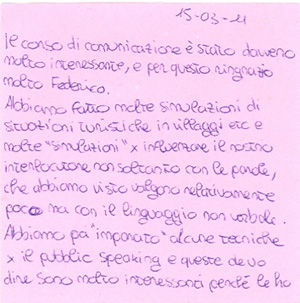 15-03-21
Il corso di comunicazione è stato davvero
molto interessante, e per questo ringrazio
molto Federico.
Abbiamo fatto molte simulazioni di
situazioni turistiche in villaggi etc e
molte "simulazioni" x influenzare il nostro
interlocutore non soltanto con le parole,
che abbiamo visto valgono relativamente
poco ma con il linguaggio non verbale.
Abbiamo poi "imparato" alcune tecniche
x il pubblic speaking e queste devo
dire sono molto interessanti perché le ho